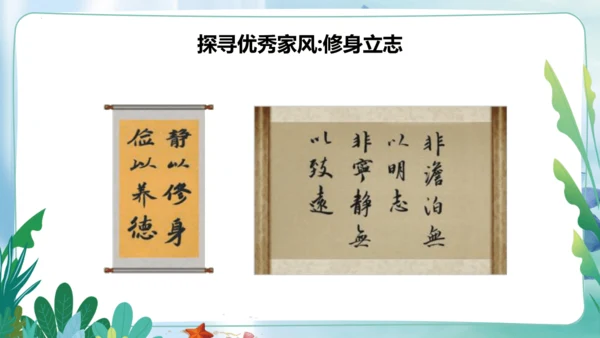 探寻优秀家风:修身立志
静以修身
俭以养德
非澹泊無
以明志
非寧静無
以致遠